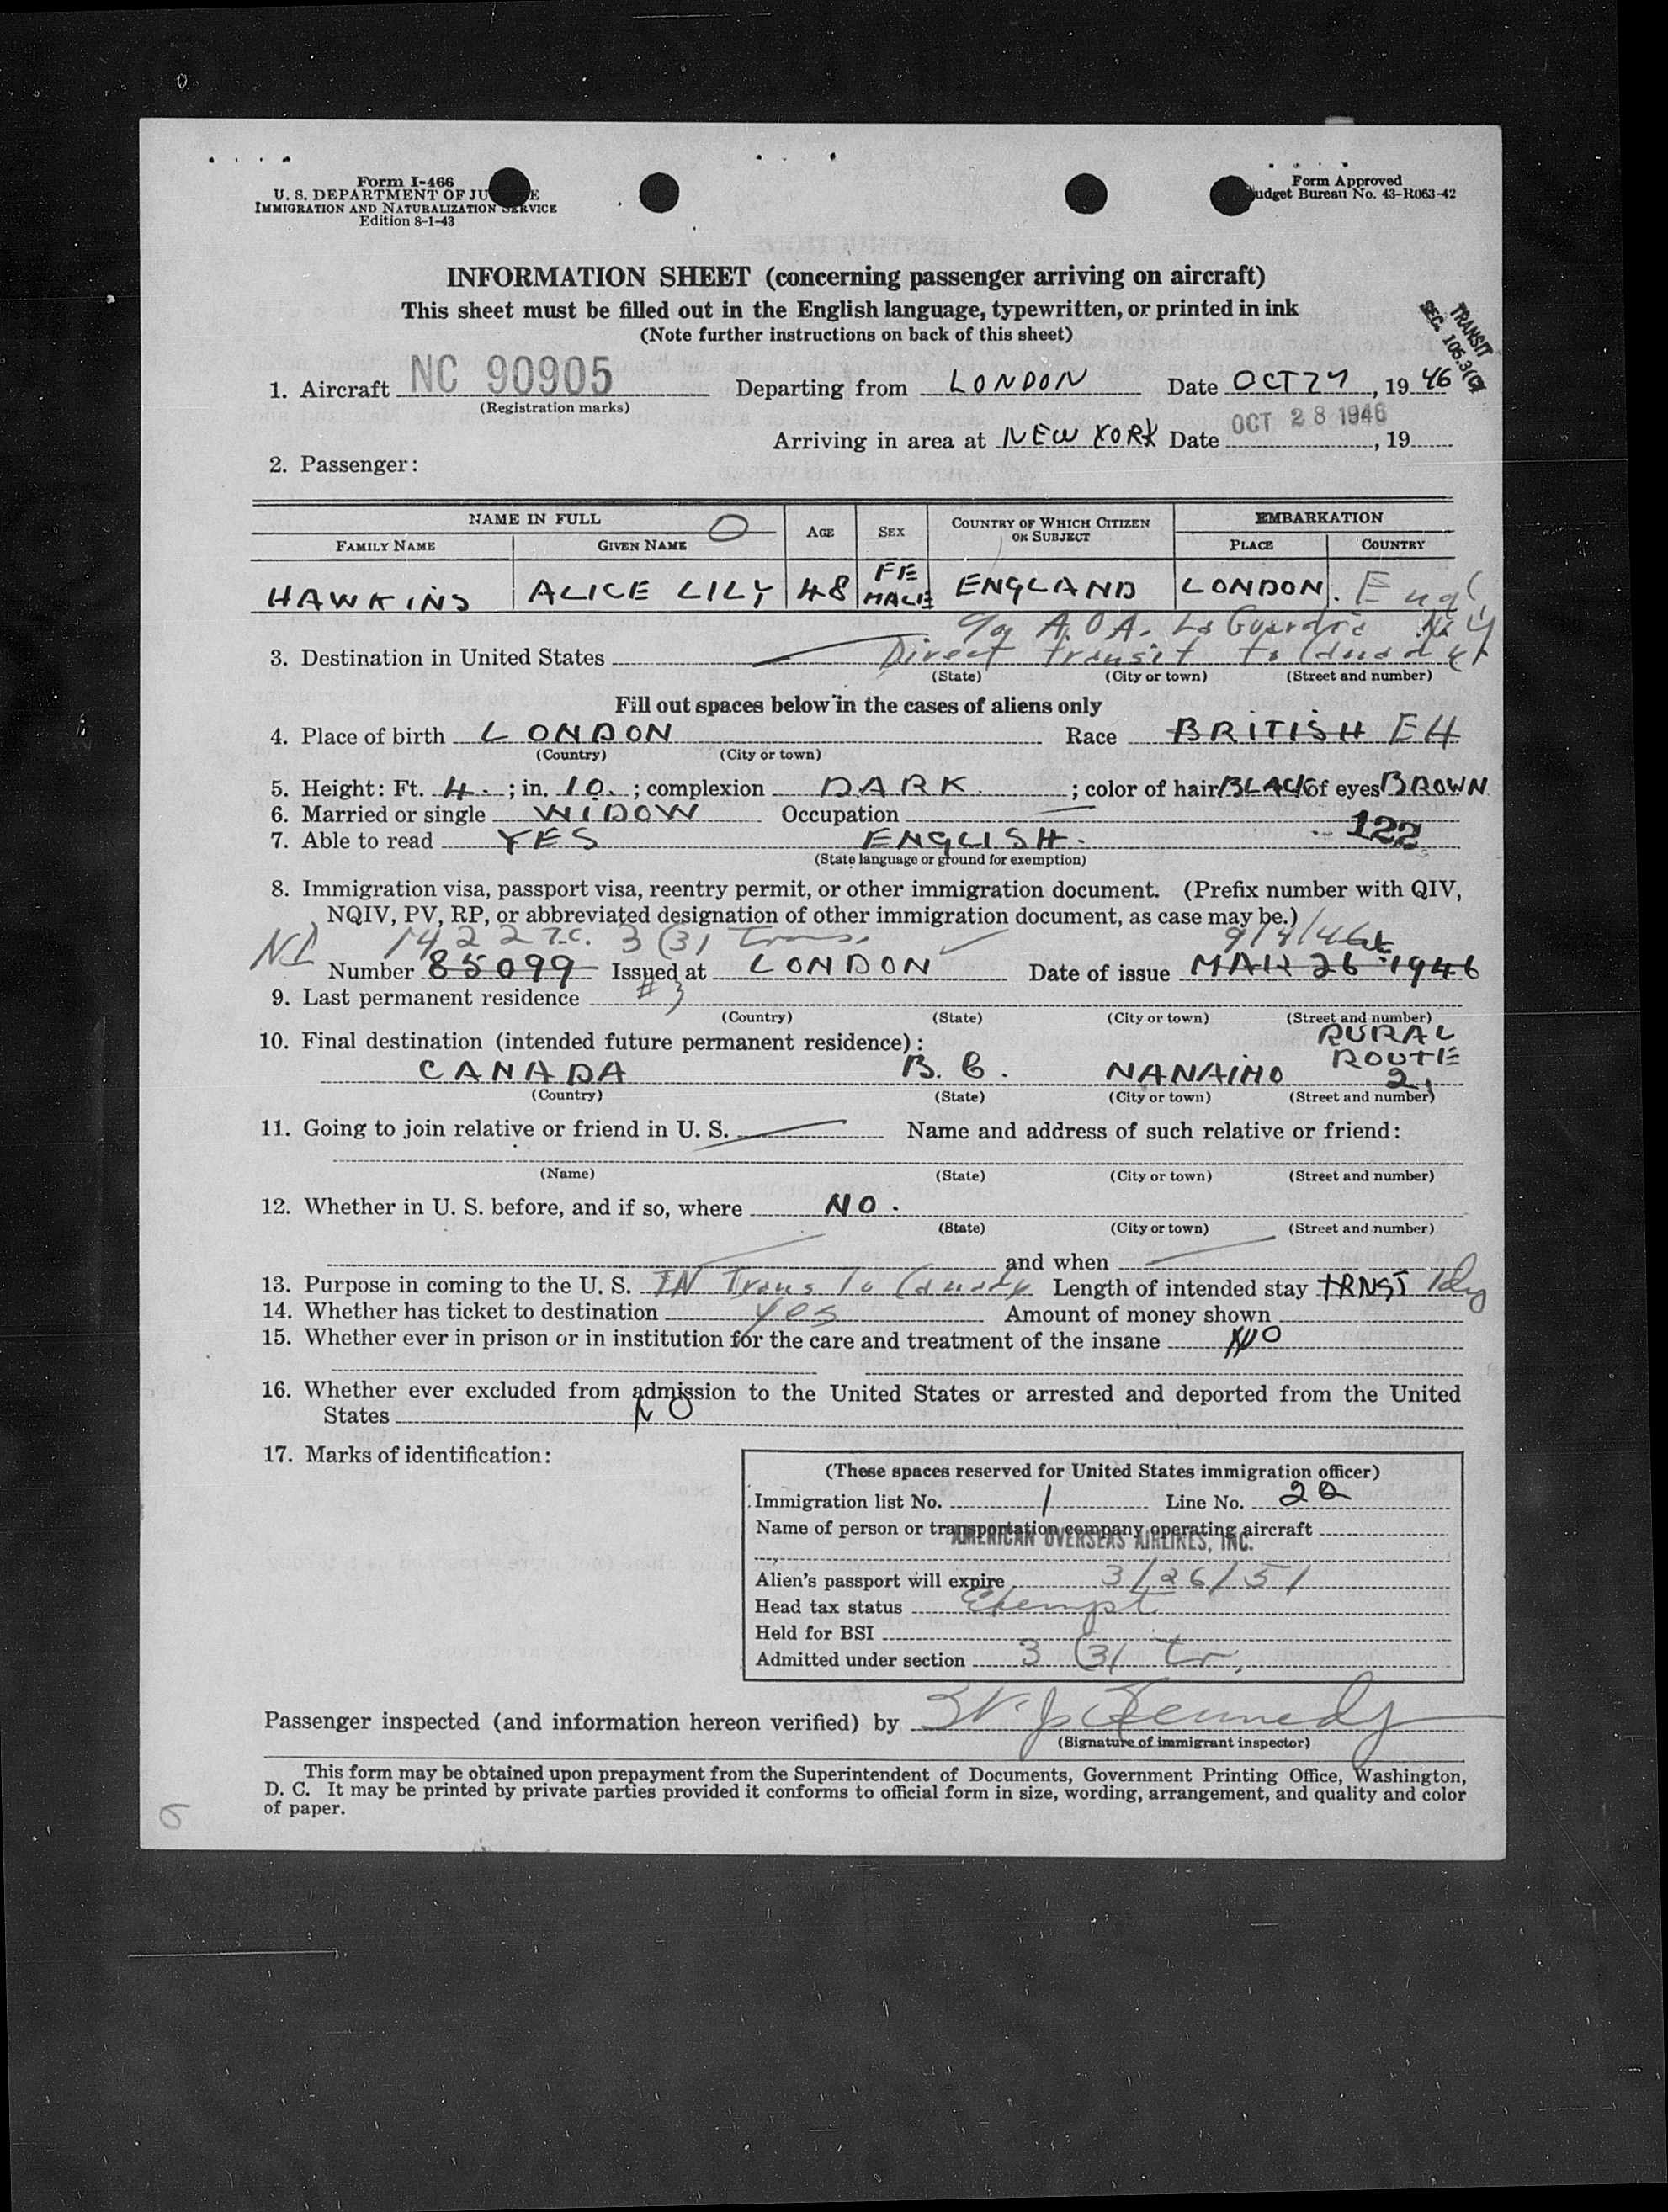 Form I-466
U. S. DEPARTMENT OF JU E
IMMIGRATION AND NATURALIZATION SERVICE
Edition 8-1-43
Form Approved
udget Bureau No. 43-R063-42
INFORMATION SHEET (concerning passenger arriving on aircraft)
This sheet must be filled out in the English language, typewritten, or printed in ink
(Note further instructions on back of this sheet)
TRANSIT
SEC. 105.3(C)
1. Aircraft NC 90905 Departing from LONDON Date OCT 27, 19 46
(Registration marks)
Arriving in area at NEW YORK Date OCT 28 1946, 19
2. Passenger:
NAME IN FULL AGE SEX COUNTRY OF WHICH CITIZEN OR SUBJECT EMBARKATION
FAMILY NAME GIVEN NAME PLACE COUNTRY
HAWKINS ALICE LILY 48 FE MALE ENGLAND LONDON. Engl
A.O.A. La Guardia N.Y
3. Destination in United States Direct transit to Canada
(State) (City or town) (Street and number)
Fill out spaces below in the cases of aliens only
4. Place of birth LONDON Race BRITISH EH
(Country) (City or town)
5. Height: Ft. 4. ; in. 10. ; complexion DARK. ; color of hair BLACK of eyes BROWN
6. Married or single WIDOW Occupation
7. Able to read YES ENGLISH. 122
(State language or ground for exemption)
8. Immigration visa, passport visa, reentry permit, or other immigration document. (Prefix number with QIV,
NQIV, PV, RP, or abbreviated designation of other immigration document, as case may be.)
1422 T.C. 3(3) Trans. 9/4/46
Number 85099 Issued at LONDON Date of issue MAR 26 1946
9. Last permanent residence
(Country) (State) (City or town) (Street and number)
10. Final destination (intended future permanent residence):
RURAL
ROUTE
CANADA B.C. NANAIMO 2,
(Country) (State) (City or town) (Street and number)
11. Going to join relative or friend in U. S. Name and address of such relative or friend:
(Name) (State) (City or town) (Street and number)
12. Whether in U. S. before, and if so, where NO.
(State) (City or town) (Street and number)
and when
13. Purpose in coming to the U. S. IN Trans To Canada Length of intended stay TRNST 1dy
14. Whether has ticket to destination yes Amount of money shown
15. Whether ever in prison or in institution for the care and treatment of the insane NO
16. Whether ever excluded from admission to the United States or arrested and deported from the United
States NO
17. Marks of identification:
(These spaces reserved for United States immigration officer)
Immigration list No. 1 Line No. 22
Name of person or transportation company operating aircraft
AMERICAN OVERSEAS AIRLINES, INC.
Alien's passport will expire 3/26/51
Head tax status Exempt
Held for BSI
Admitted under section 3 (3) tr.
Passenger inspected (and information hereon verified) by W. J. Kennedy
(Signature of immigrant inspector)
This form may be obtained upon prepayment from the Superintendent of Documents, Government Printing Office, Washington,
D. C. It may be printed by private parties provided it conforms to official form in size, wording, arrangement, and quality and color
of paper.